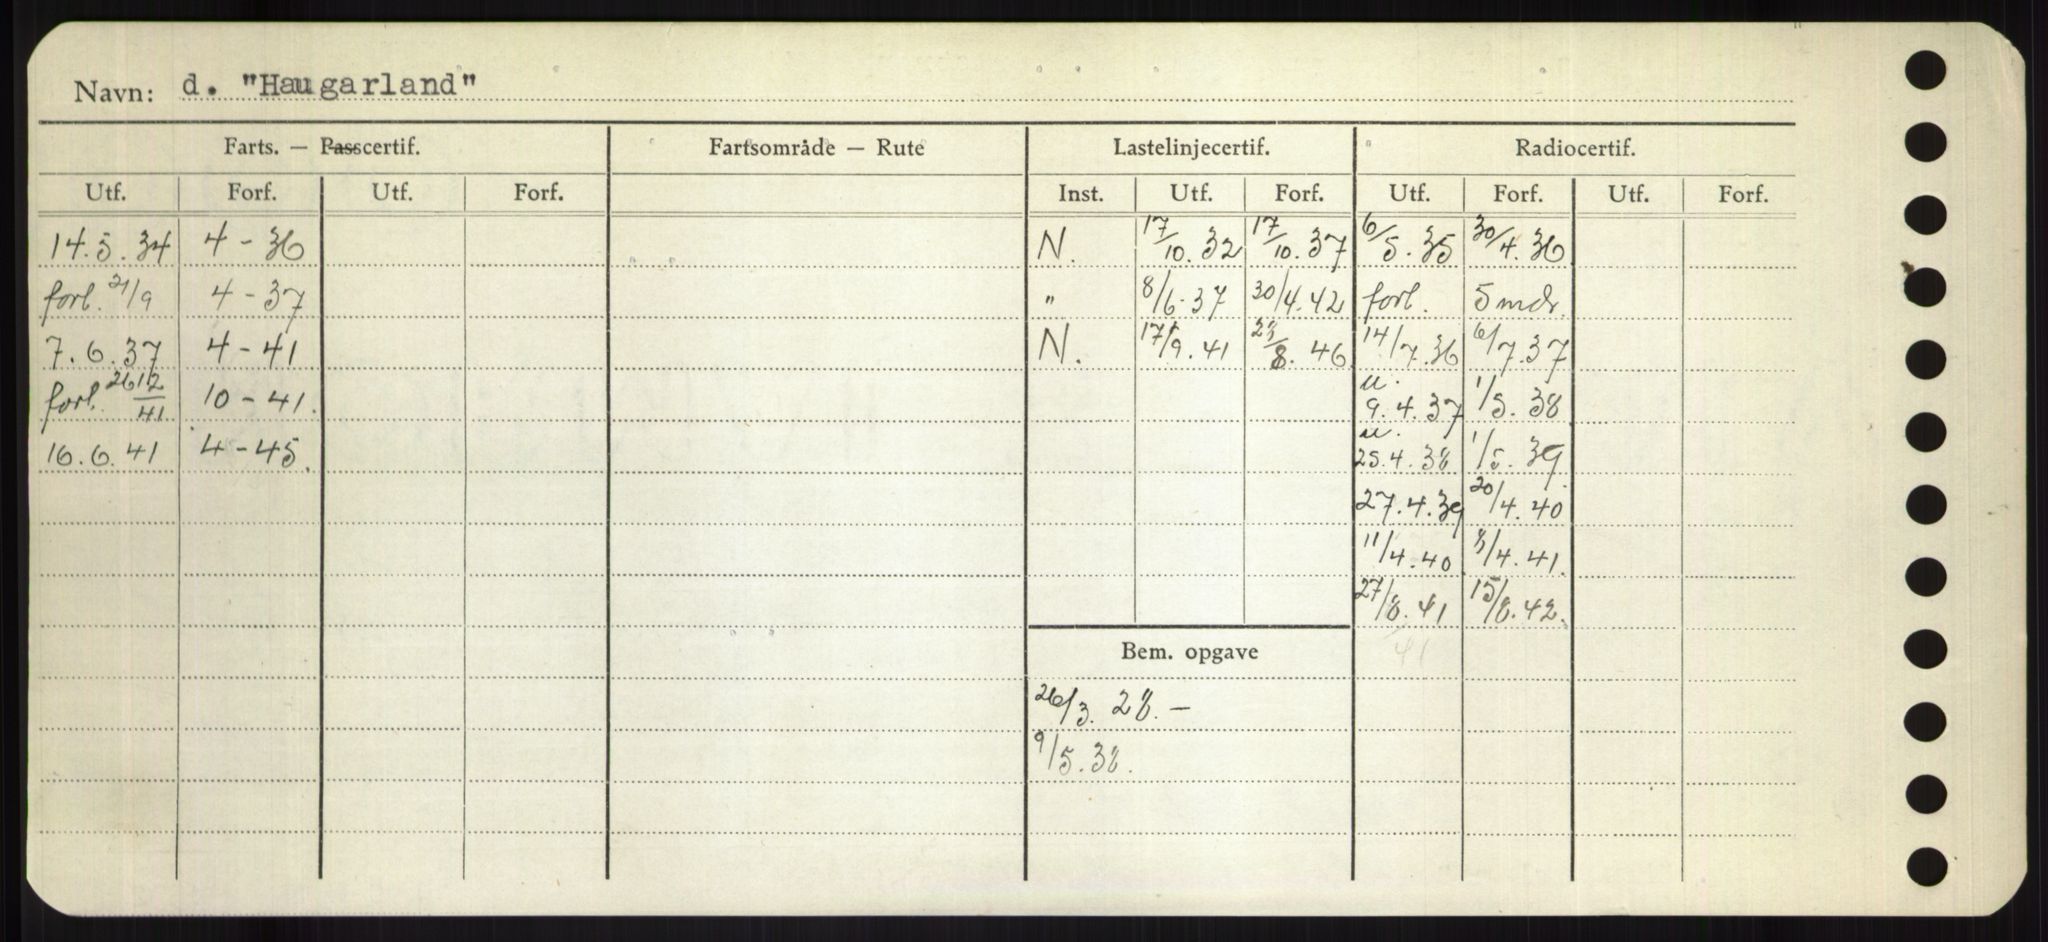 Navn: d. "Haugarland"
Farts. — Passcertif. Fartsområde — Rute Lastelinjecertif. Radiocertif.
Utf. Forf. Utf. Forf. Inst. Utf. Forf. Utf. Forf. Utf. Forf.
14.5.34 4-36 N. 17/10.32 17/10.37 6/5.35 30/4.36
forl. 21/9 4-37 " 8/6.37 30/4.42 forl. 5 mdr.
7.6.37 4-41 N. 17/9.41 28/8.46 14/7.36 6/7.37
forl. 26/2 41 10-41. u. 9.4.37 1/5.38
16.6.41 4-45. u. 25.4.38 1/5.39
27.4.39 20/4.40
11/4.40 8/4.41.
27/8.41 15/8.42.
Bem. opgave 41
26/3. 28.—
9/5.38.